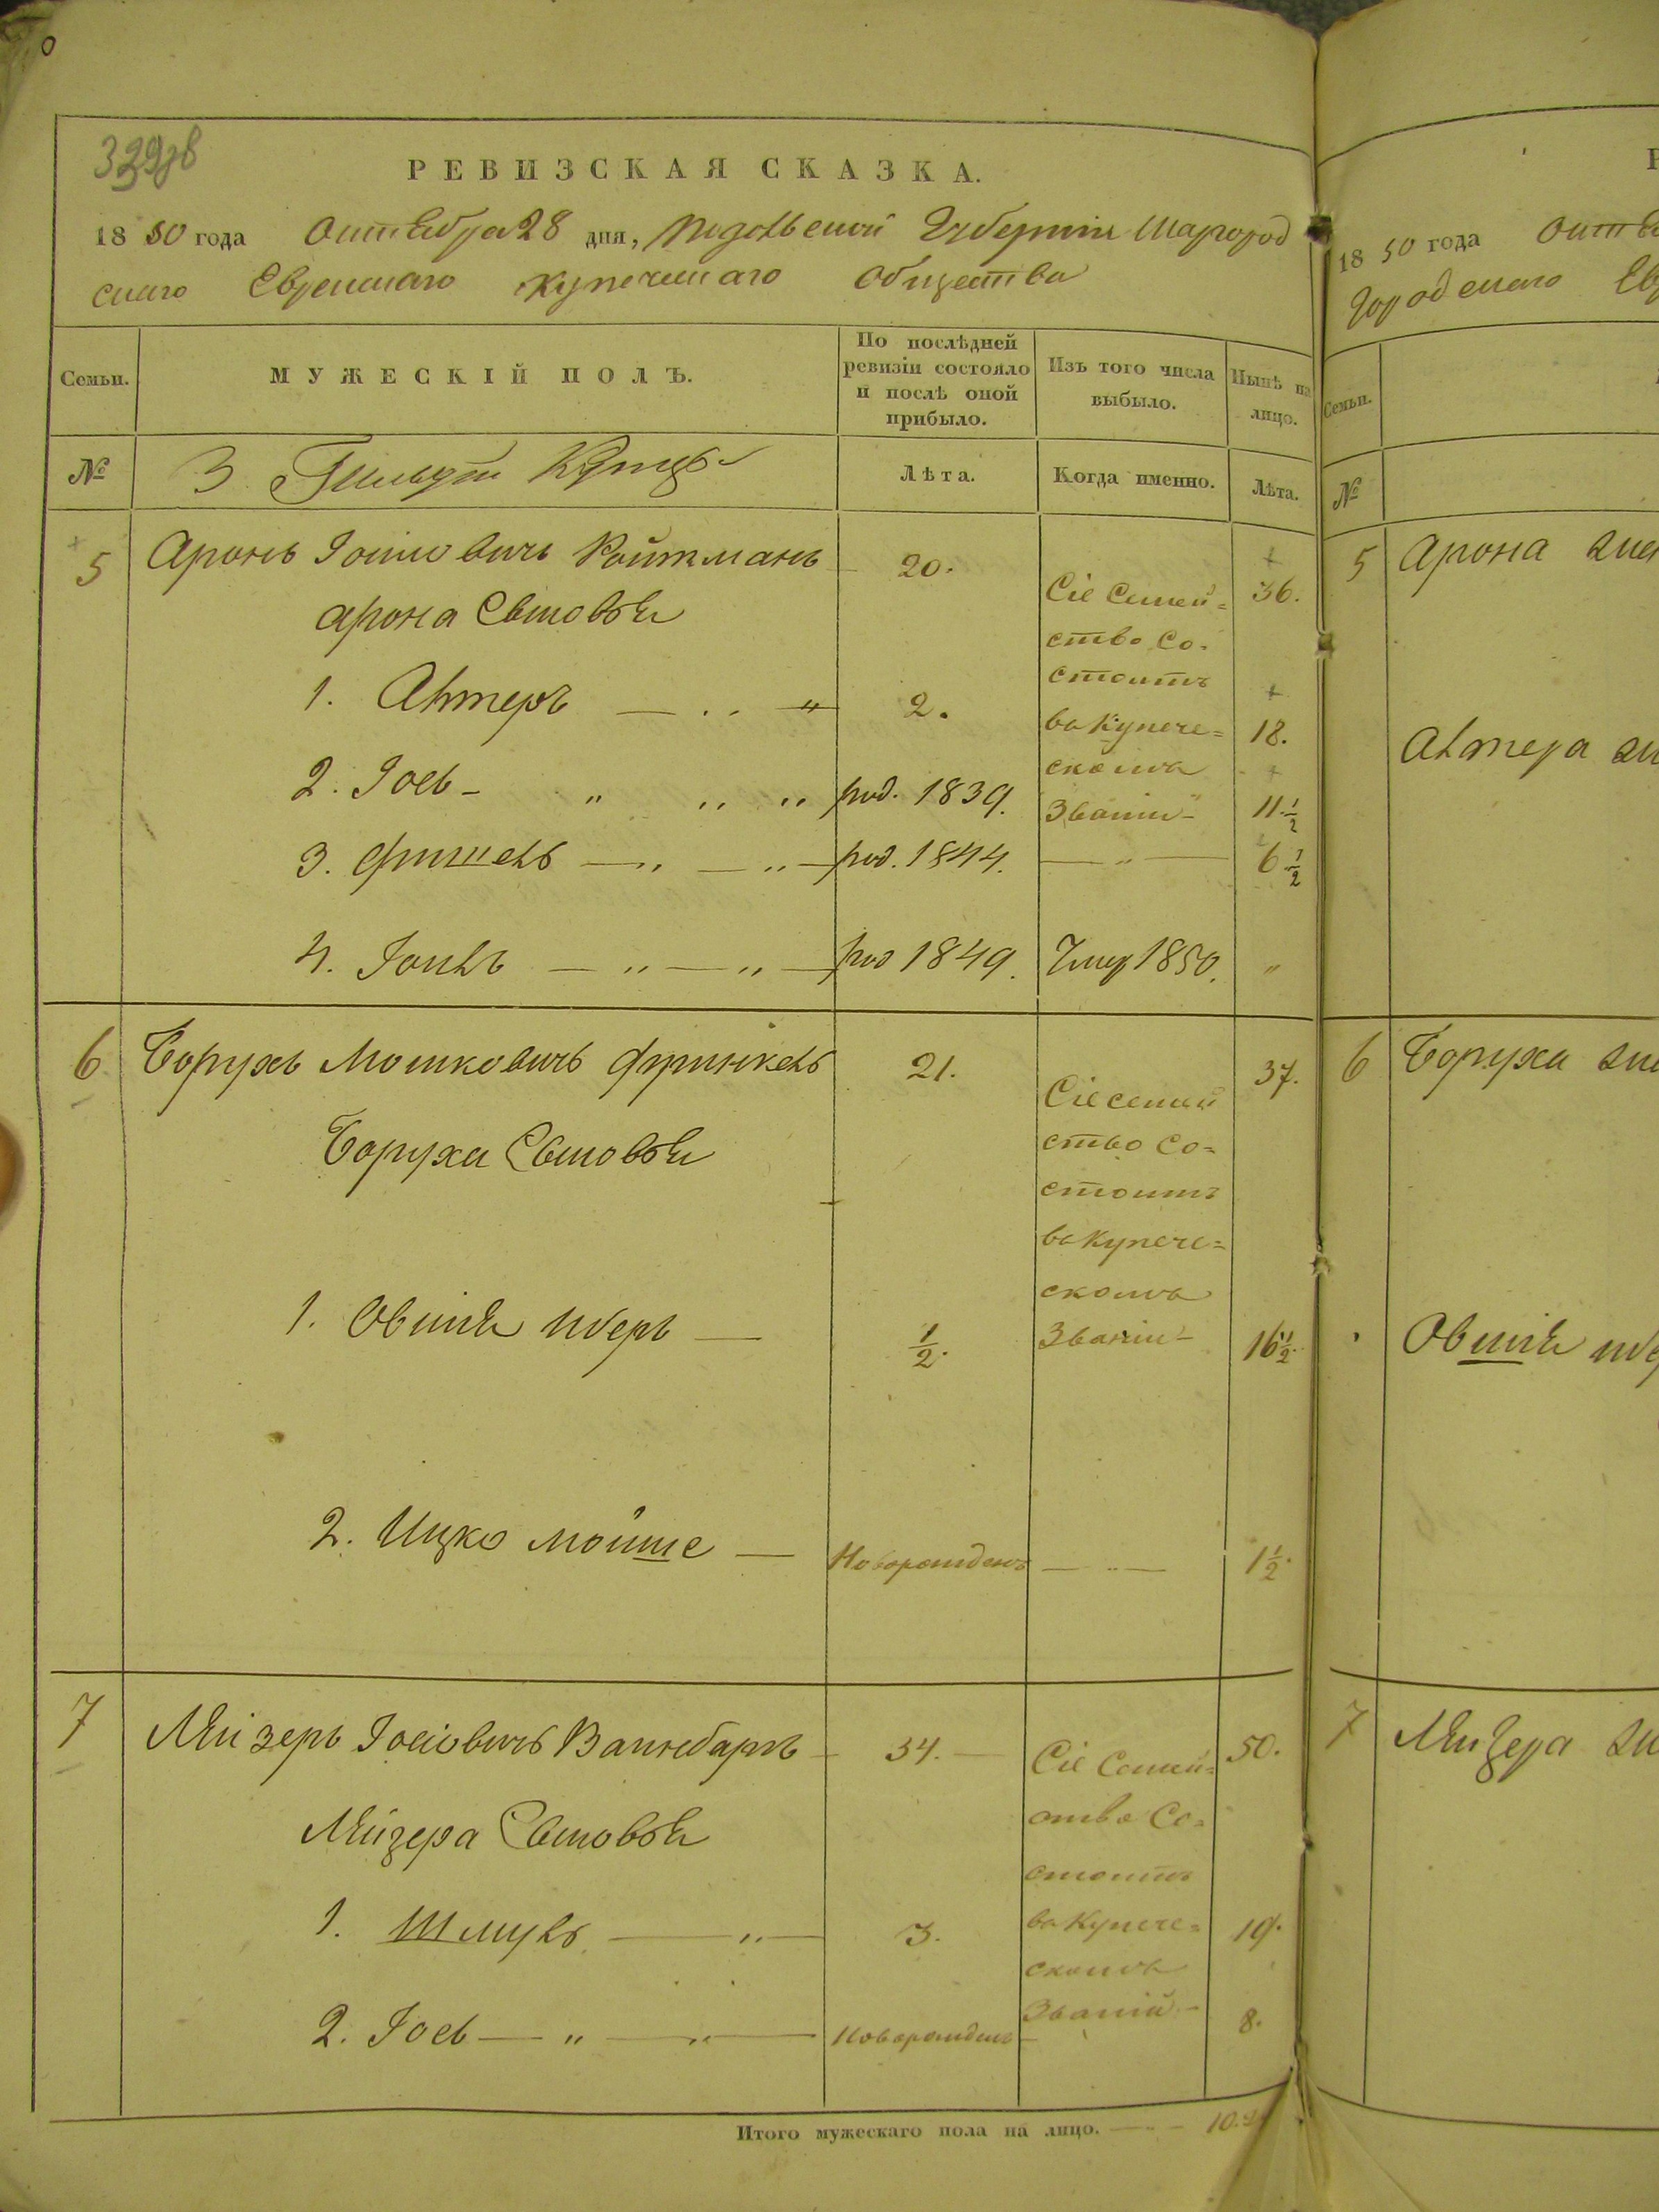 329об
РЕВИЗСКАЯ СКАЗКА.
1850 года Октября 28 дня, Подольской Губернии Шаргород
скаго Еврейскаго купеческаго общества
Семьи.
МУЖЕСКІЙ ПОЛЪ.
По послѣдней
ревизіи состояло
и послѣ оной
прибыло.
Изъ того числа
выбыло.
Нынѣ на
лицо.
№
3 Гильдіи Купцы
Лѣта.
Когда именно.
Лѣта.
5 Аронъ Іойловичъ Ройтманъ 20. 36.
Арона Сыновья
Сіе Семей=
ство Со-
стоитъ
въ Купече=
скомъ
Званіи
1. Алтеръ 2. 18.
2. Іось род. 1839. 11 1/2
3. Фишель род. 1844. 6 1/2
4. Іоиль род 1849. Умер 1850. "
6 Борухъ Мошковичъ Френкель 21. 37.
Боруха Сыновья
Сіе семей
ство Со=
стоитъ
въ Купече=
скомъ
Званіи
1. Овшія Иберъ 1/2. 16 1/2.
2. Ицко Мойше Новорожденъ 1 1/2.
7 Лейзеръ Іосіовичъ Вайнбаргъ 34. 50.
Лейзера Сыновья
Сіе Семей=
ство Со=
стоитъ
въ Купече=
скомъ
Званій
1. Шмуль 3. 19.
2. Іось Новорожденъ 8.
Итого мужескаго пола на лицо. 10.
18 50 года
городскаго
Семьи.
№
5 Арона
Алтера
6 Боруха
Овшія
7 Лейзера